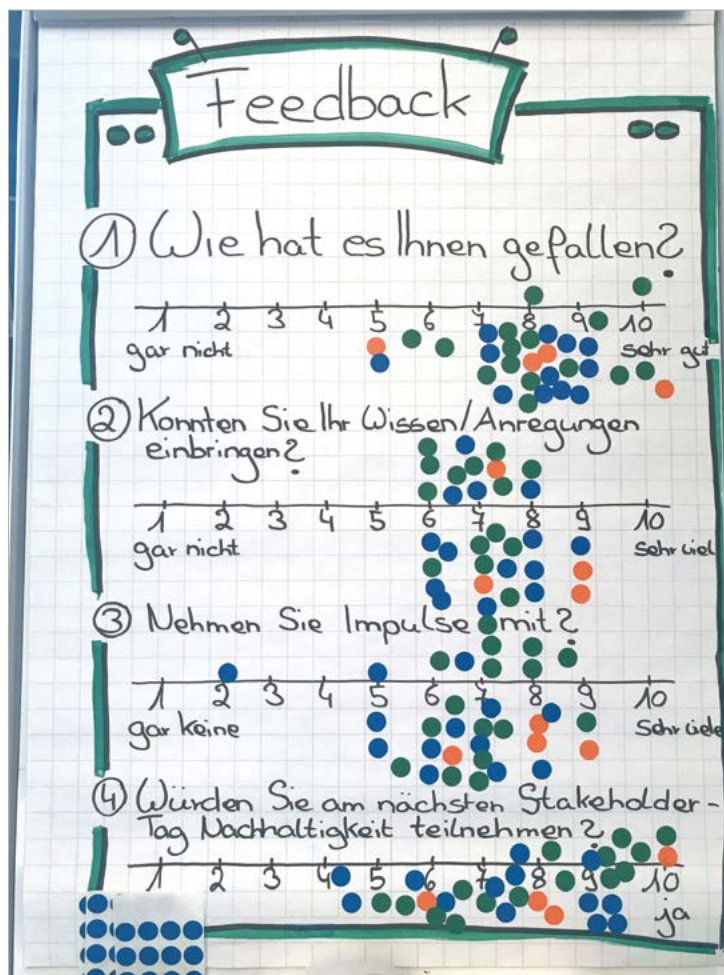 Feedback
① Wie hat es Ihnen gefallen?
1 2 3 4 5 6 7 8 9 10
gar nicht sehr gut
② Konnten Sie Ihr Wissen/Anregungen
einbringen?
1 2 3 4 5 6 7 8 9 10
gar nicht sehr viel
③ Nehmen Sie Impulse mit?
1 2 3 4 5 6 7 8 9 10
gar keine sehr viele
④ Würden Sie am nächsten Stakeholder-
Tag Nachhaltigkeit teilnehmen?
1 2 3 4 5 6 7 8 9 10
ja